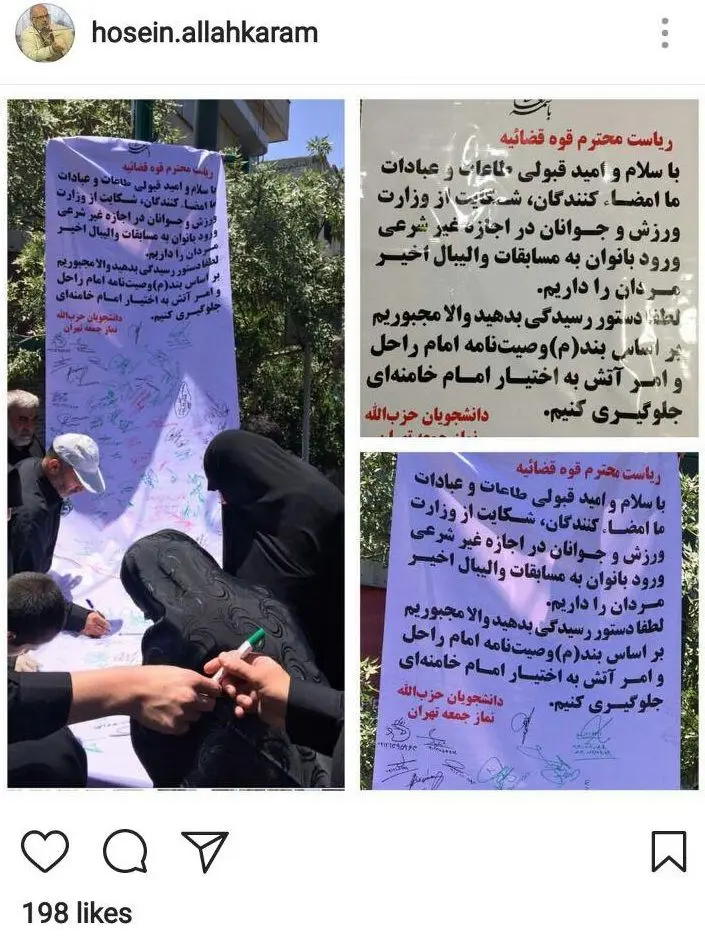 hosein.allahkaram
ریاست محترم قوه قضائیه
با سلام و امید قبولی طاعات و عبادات
ما امضاء کنندگان، شکایت از وزارت
ورزش و جوانان در اجازه غیر شرعی
ورود بانوان به مسابقات والیبال اخیر
مردان را داریم.
لطفا دستور رسیدگی بدهید والا مجبوریم
بر اساس بند(م)وصیت‌نامه امام راحل
و امر آتش به اختیار امام خامنه‌ای
جلوگیری کنیم.
دانشجویان حزب‌الله
نماز جمعه تهران
باسمه تعالی
ریاست محترم قوه قضائیه
با سلام و امید قبولی طاعات و عبادات
ما امضاء کنندگان، شکایت از وزارت
ورزش و جوانان در اجازه غیر شرعی
ورود بانوان به مسابقات والیبال اخیر
مردان را داریم.
لطفا دستور رسیدگی بدهید والا مجبوریم
بر اساس بند(م)وصیت‌نامه امام راحل
و امر آتش به اختیار امام خامنه‌ای
جلوگیری کنیم.
دانشجویان حزب‌الله
نماز جمعه تهران
ریاست محترم قوه قضائیه
با سلام و امید قبولی طاعات و عبادات
ما امضاء کنندگان، شکایت از وزارت
ورزش و جوانان در اجازه غیر شرعی
ورود بانوان به مسابقات والیبال اخیر
مردان را داریم.
لطفا دستور رسیدگی بدهید والا مجبوریم
بر اساس بند(م)وصیت‌نامه امام راحل
و امر آتش به اختیار امام خامنه‌ای
جلوگیری کنیم.
دانشجویان حزب‌الله
نماز جمعه تهران
198 likes